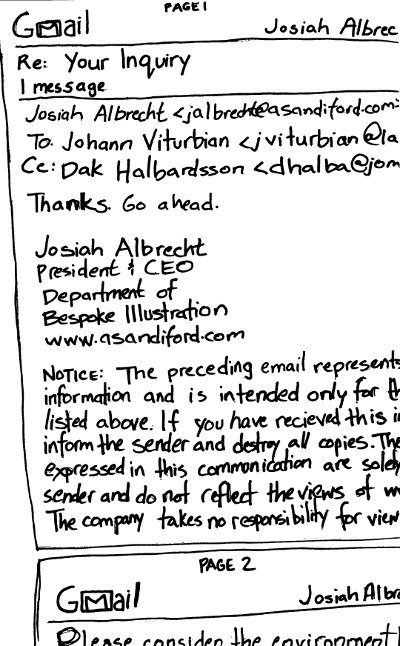 PAGE 1
Gmail Josiah Albrec
Re: Your Inquiry
1 message
Josiah Albrecht <jalbrecht@asandiford.com>
To: Johann Viturbian <jviturbian@la
Cc: Dak Halbardsson <dhalba@jom
Thanks. Go ahead.
Josiah Albrecht
President & CEO
Department of
Bespoke Illustration
www.asandiford.com
NOTICE: The preceding email represents
information and is intended only for th
listed above. If you have recieved this i
inform the sender and destroy all copies. The
expressed in this communication are solely
sender and do not reflect the views of
The company takes no responsibility for view
PAGE 2
Gmail Josiah Albra
Please consider the environment